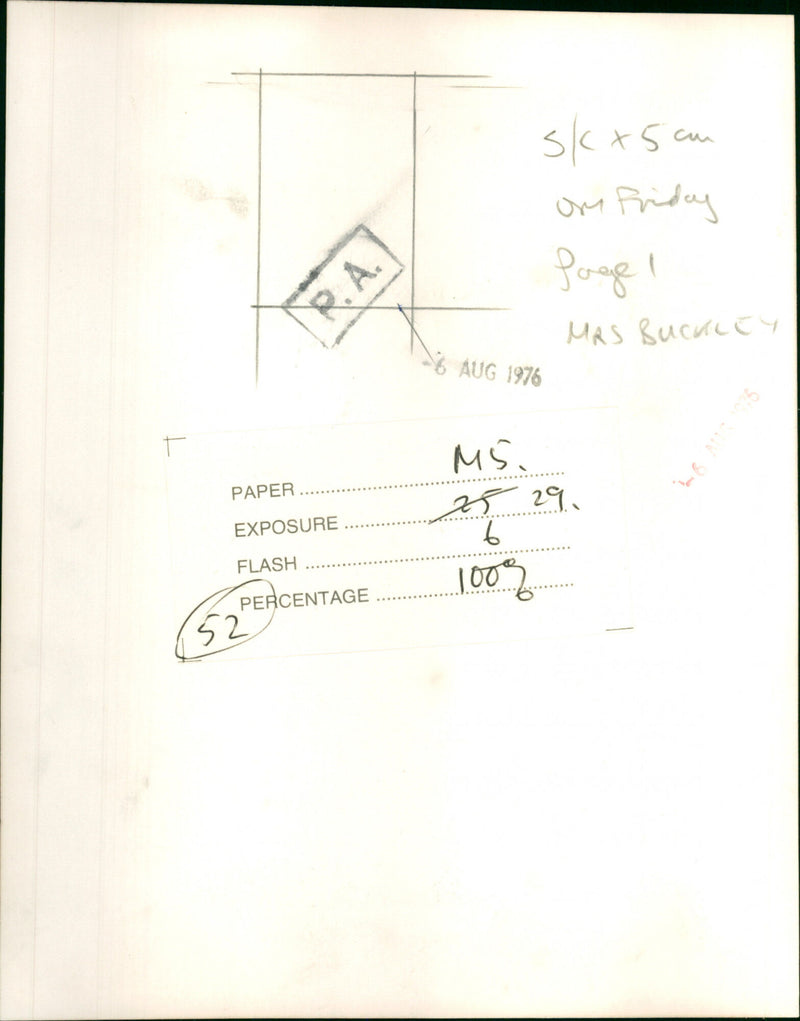 S/C x 5 cm
on Friday
Page 1
MRS BUCKLEY
P.A.
-6 AUG 1976
-6 AUG 1976
PAPER M5.
EXPOSURE 25 29.
FLASH 6
PERCENTAGE 100%
52